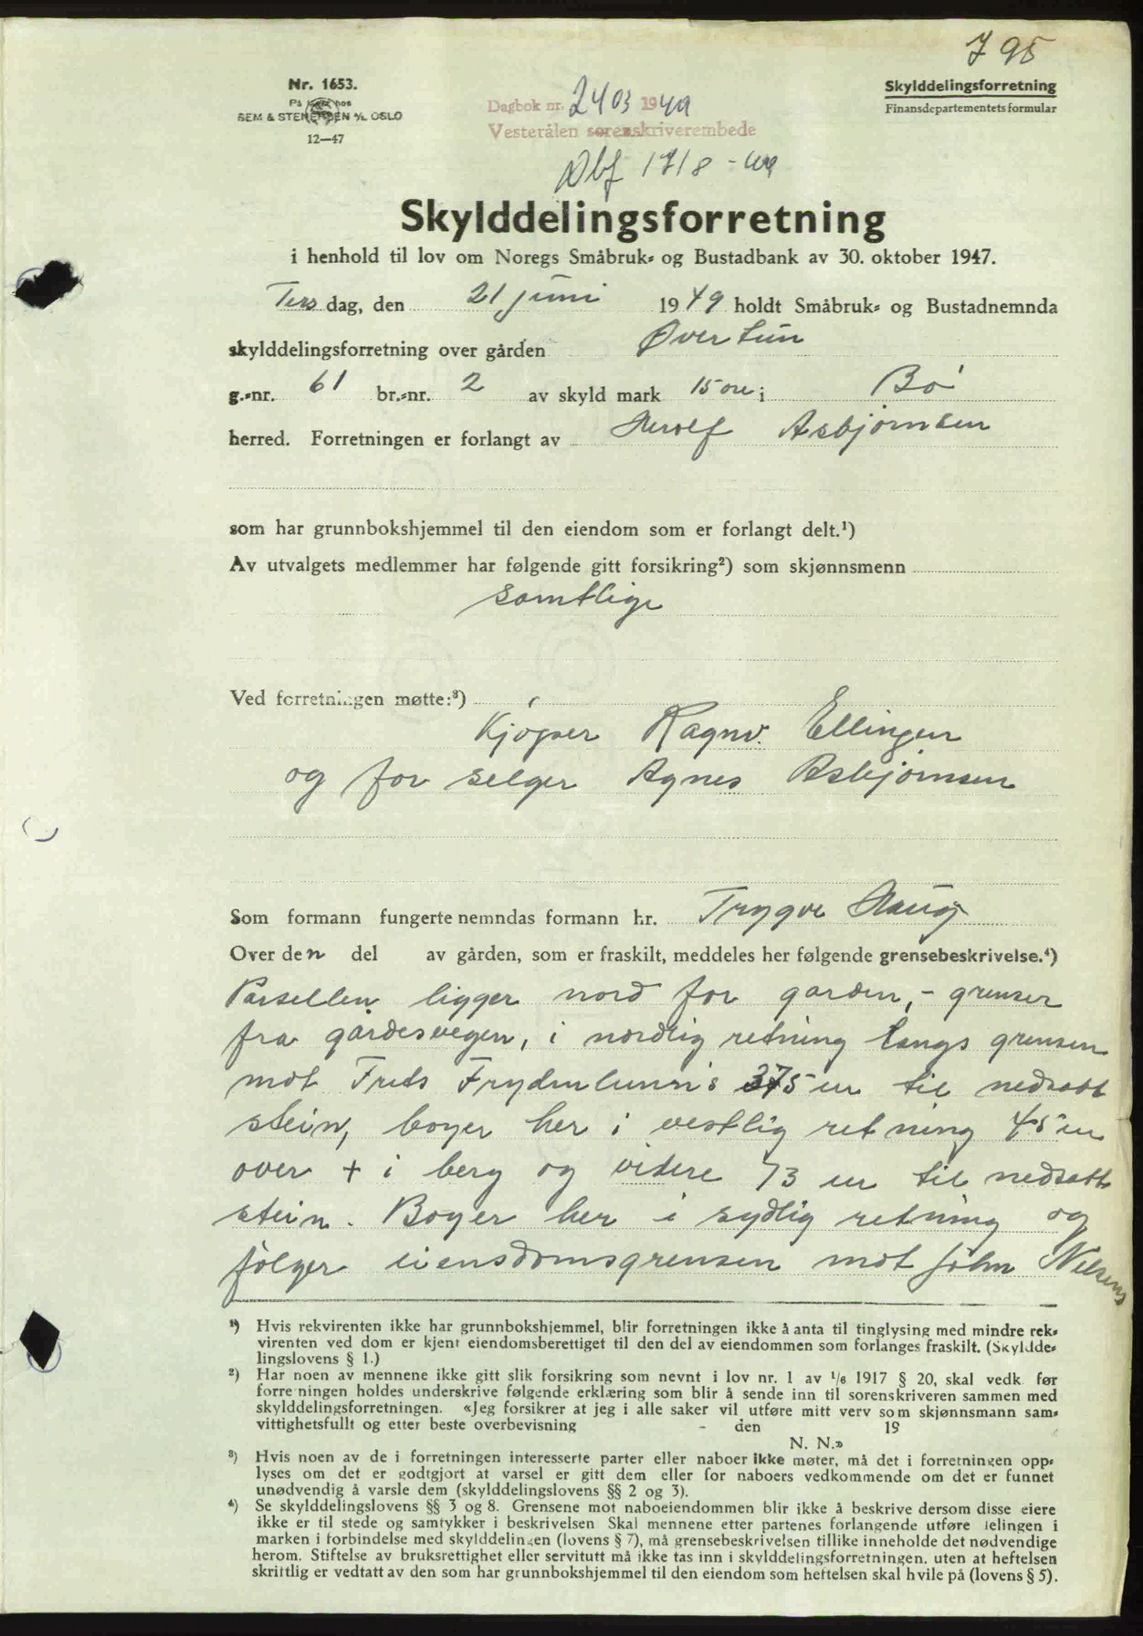 795
Nr. 1653.
SEM & STENERSEN A/S. OSLO
12—47
Dagbok nr. 2403 1949
Vesterålen sorenskriverembede
Dbf 1718 - 49
Skylddelingsforretning
Finansdepartementets formular
Skylddelingsforretning
i henhold til lov om Noregs Småbruk- og Bustadbank av 30. oktober 1947.
Tirs dag, den 21 juni 1949 holdt Småbruk- og Bustadnemnda
skylddelingsforretning over gården Øvertun
g.-nr. 61 br.-nr. 2 av skyld mark 15 øre i Bø
herred. Forretningen er forlangt av Herolf Asbjørnsen
som har grunnbokshjemmel til den eiendom som er forlangt delt.¹)
Av utvalgets medlemmer har følgende gitt forsikring²) som skjønnsmenn
samtlige
Ved forretningen møtte:³)
Kjøper Ragnv. Ellingsen
og for selger Agnes Asbjørnsen
Som formann fungerte nemndas formann hr. Trygve Haug
Over den del av gården, som er fraskilt, meddeles her følgende grensebeskrivelse.⁴)
Parsellen ligger nord for garden, - grenser
fra gårdesvegen, i nordlig retning langs grensen
mot Frits Frydenlunn's 375 m til nedsatt
stein, bøyer her i vestlig retning 45 m
over + i berg og videre 73 m til nedsatt
stein. Bøyer her i sydlig retning og
følger eiensdomsgrensen mot John Nilsens
¹) Hvis rekvirenten ikke har grunnbokshjemmel, blir forretningen ikke å anta til tinglysing med mindre rek-
virenten ved dom er kjent eiendomsberettiget til den del av eiendommen som forlanges fraskilt. (Skyldde-
lingslovens § 1.)
²) Har noen av mennene ikke gitt slik forsikring som nevnt i lov nr. 1 av ¹/₆ 1917 § 20, skal vedk. før
forretningen holdes underskrive følgende erklæring som blir å sende inn til sorenskriveren sammen med
skylddelingsforretningen. «Jeg forsikrer at jeg i alle saker vil utføre mitt verv som skjønnsmann sam-
vittighetsfullt og etter beste overbevisning - den 19
N. N.»
³) Hvis noen av de i forretningen interesserte parter eller naboer ikke møter, må det i forretningen opp-
lyses om det er godtgjort at varsel er gitt dem eller for naboers vedkommende om det er funnet
unødvendig å varsle dem (skylddelingslovens §§ 2 og 3).
⁴) Se skylddelingslovens §§ 3 og 8. Grensene mot naboeiendommen blir ikke å beskrive dersom disse eiere
ikke er til stede og samtykker i beskrivelsen Skal mennene etter partenes forlangende utføre delingen i
marken i forbindelse med skylddelingen (lovens § 7), må grensebeskrivelsen tillike inneholde det nødvendige
herom. Stiftelse av bruksrettighet eller servitutt må ikke tas inn i skylddelingsforretningen, uten at heftelsen
skriftlig er vedtatt av den som har grunnbokshjemmel til den eiendom som heftelsen skal hvile på (lovens § 5).